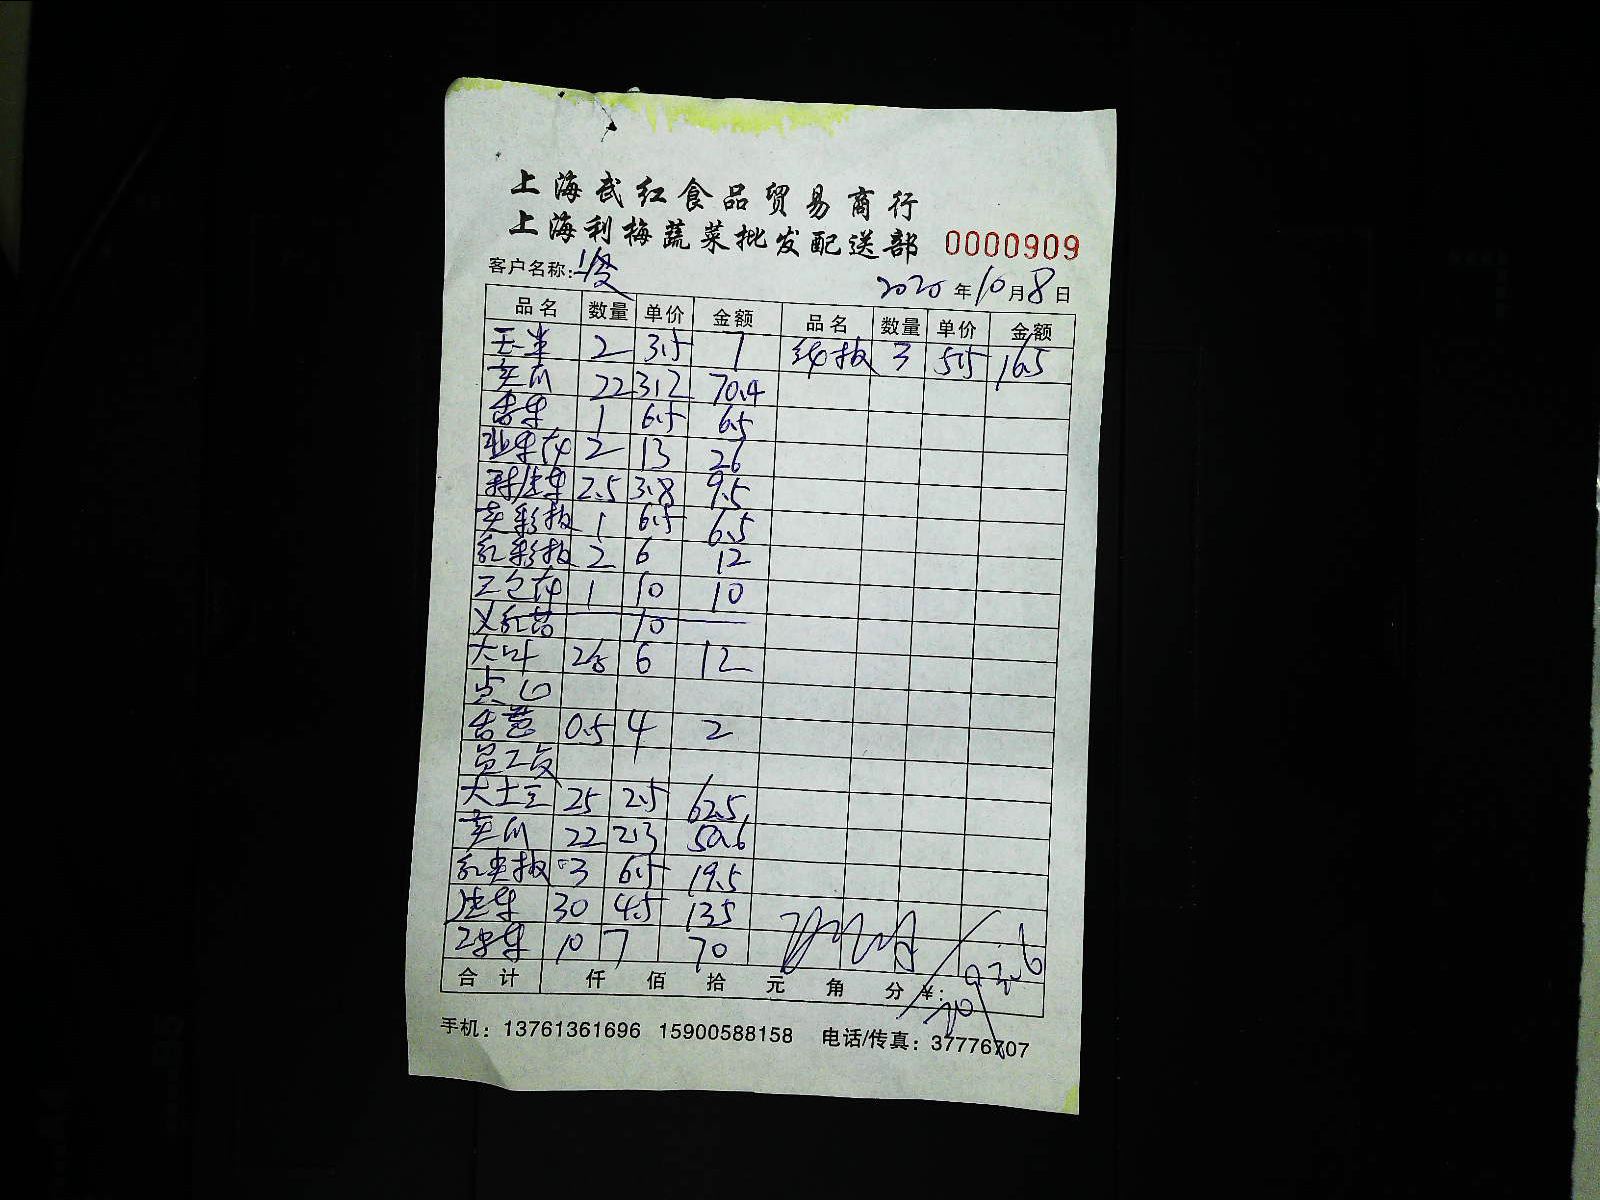 上海武红食品贸易商行
上海利梅蔬菜批发配送部 0000909
客户名称:
2020年10月8日
品名 数量 单价 金额 品名 数量 单价 金额
玉米 2 3.5 7 3 5.5 16.5
黄瓜 22 3.2 70.4
香芹 1 6.5 6.5
2 13 26
2.5 3.8 9.5
黄彩椒 1 6.5 6.5
红彩椒 2 6 12
1 10 10
10
大叶 6 12
点心
香葱 0.5 4 2
员工餐
大土豆 25 2.5 62.5
黄瓜 22 2.3 50.6
红尖椒 3 6.5 19.5
30 4.5 135
10 7 70
合计 仟 佰 拾 元 角 分 ¥:
手机: 13761361696 15900588158 电话/传真: 37776707